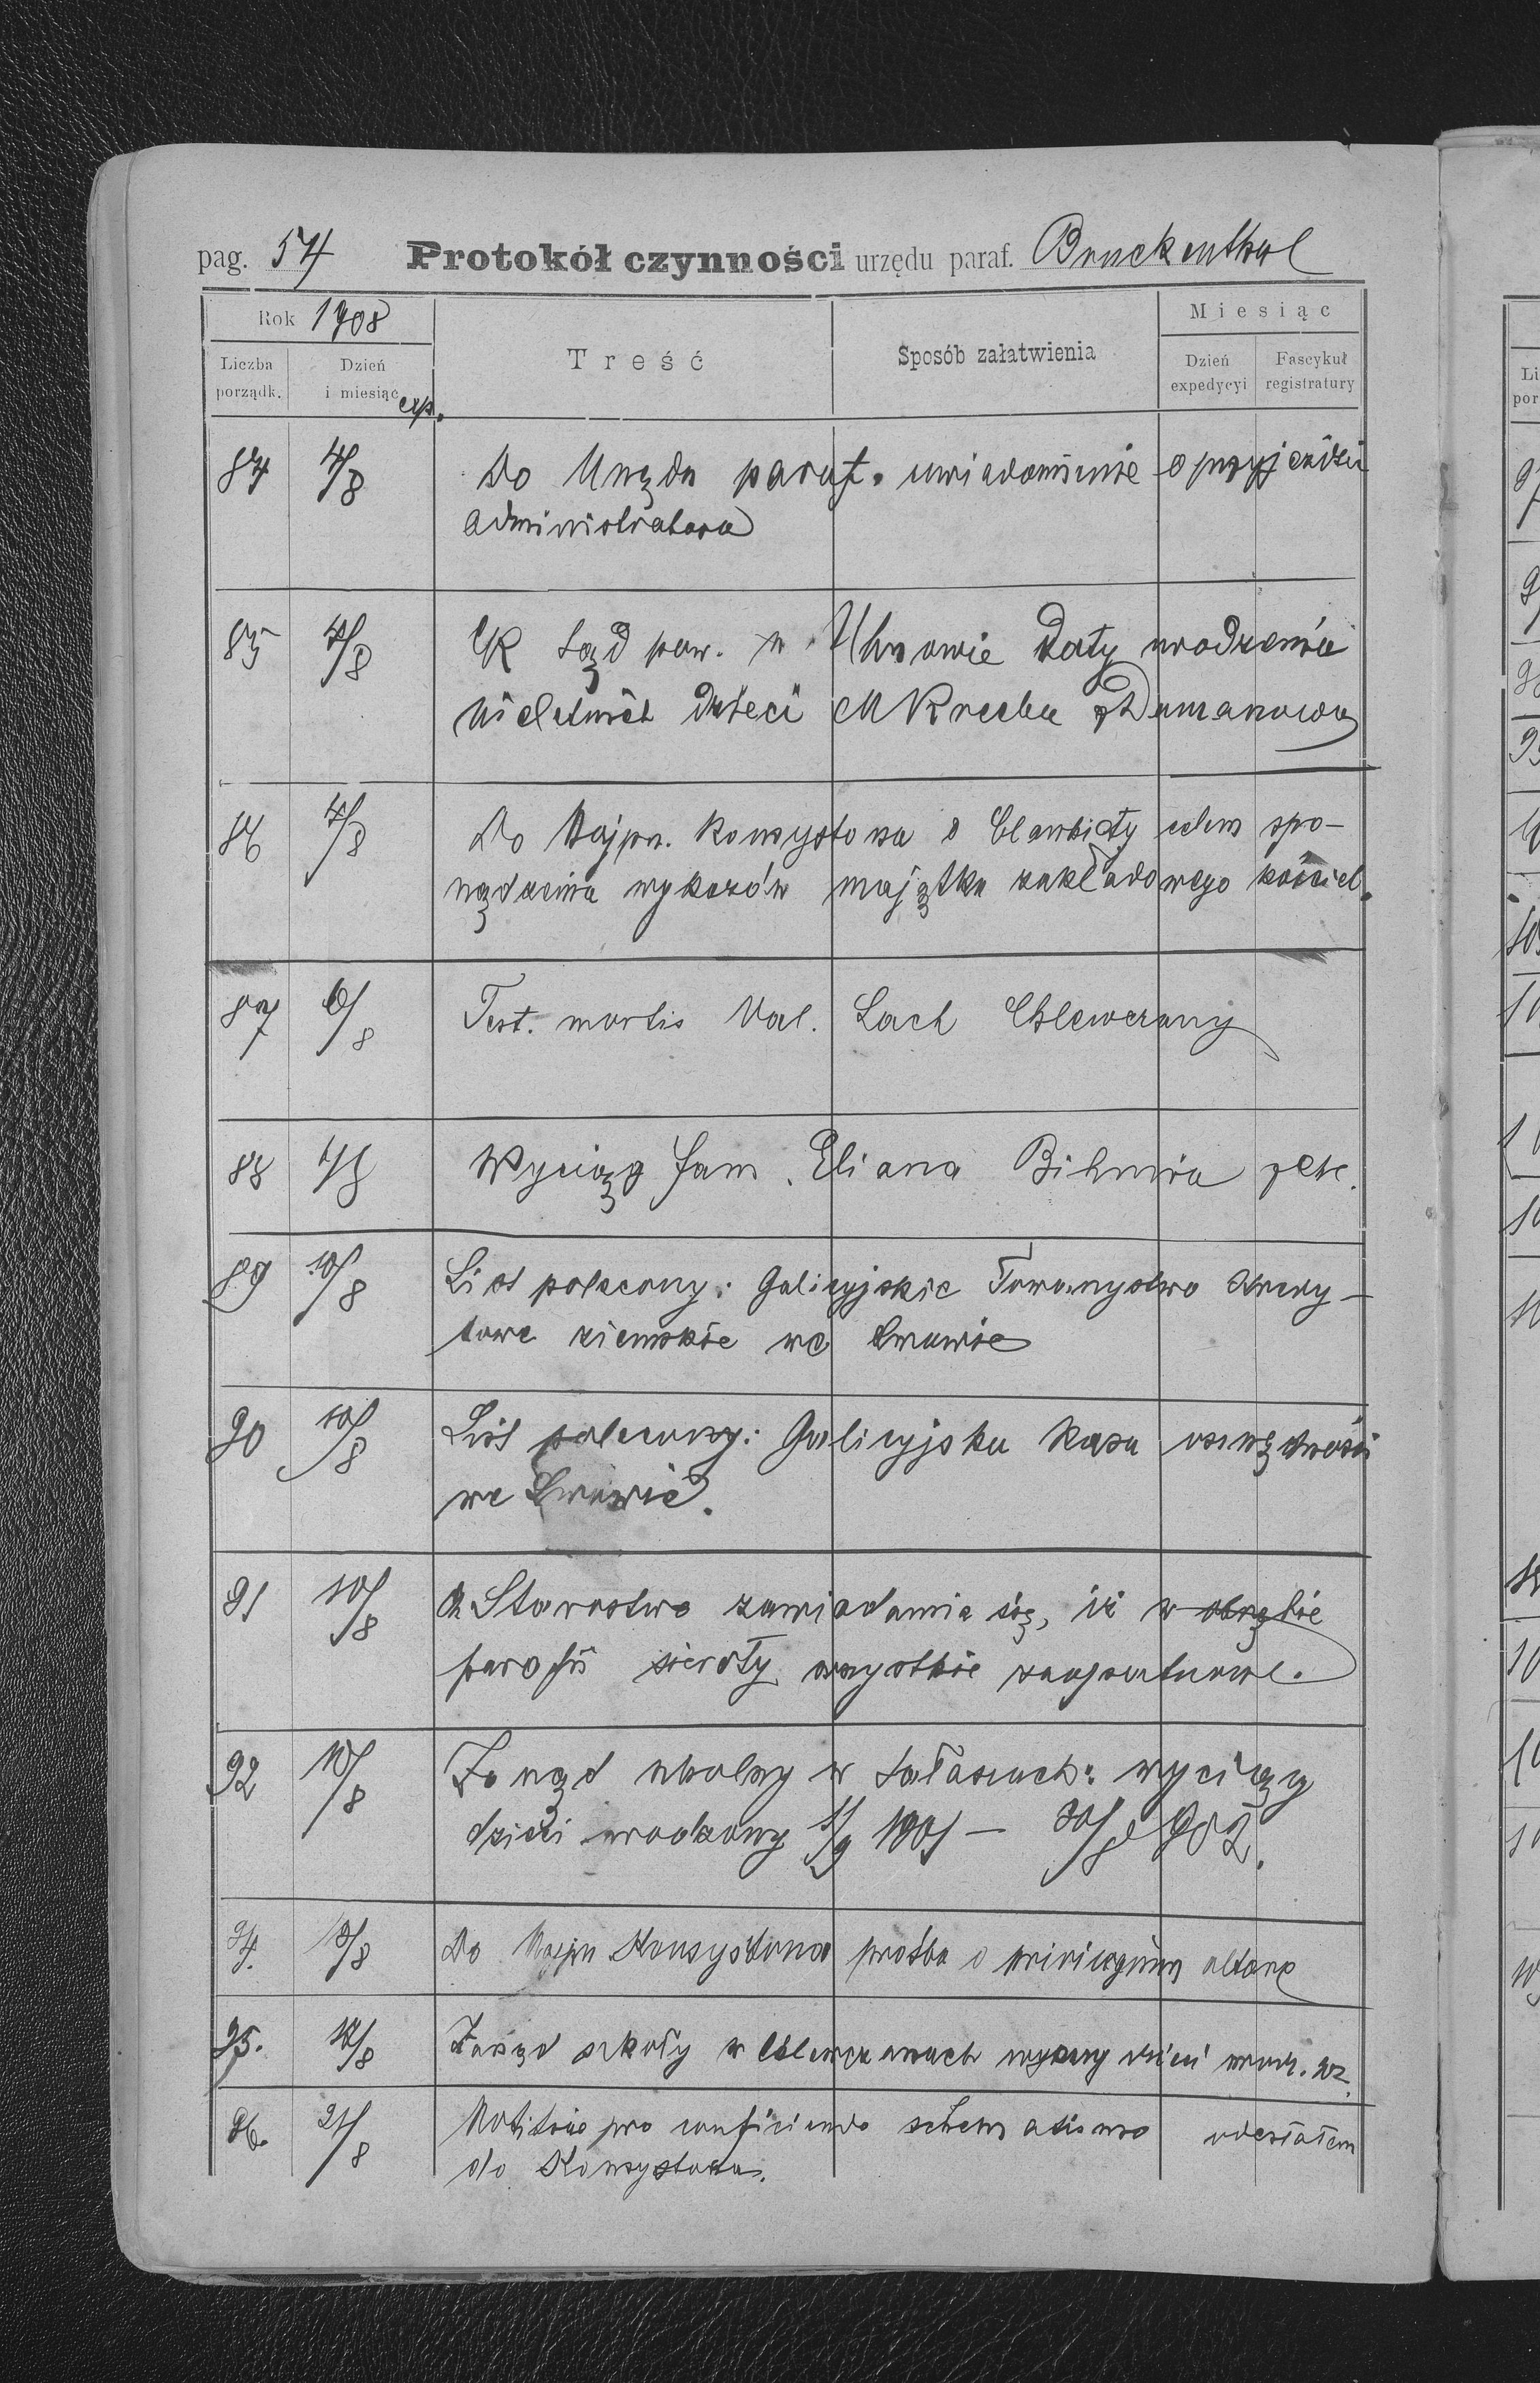 pag. 54 Protokół czynności urzędu paraf. Bruckenthal
Rok 1908 Treść Sposób załatwienia Miesiąc
Liczba porządk. Dzień i miesiąc exp. Dzień expedycyi Fascykuł registratury
84 4/8 Do Urzędu paraf. uwiadomienie o przyjeździe
administratora
85 4/8 CK Sąd pow. w Uhnowie Daty urodzenia
nieletnich dzieci M Krecha z Domanowa
86 4/8 Do Najprz. Konsystorza o blankiety celem spo-
rządzenia wykazów majątku zakładowego kościel.
87 6/8 Test. mortis Val. Lach Chlewczany
88 7/8 Wyciąg fam. Eliana Bihnia
89 10/8 List polecony: Galicyjskie Towarzystwo kredy-
towe ziemskie we Lwowie
90 10/8 List polecony: Galicyjska Kasa oszczędności
we Lwowie.
91 10/8 Starostwo zawiadamia się, iż w obrębie
parafii sieroty wszystkie zaopatrzone.
92 10/8 Zarząd szkolny w Sałaszach: wyciągy
dzieci urodzony 1/9 1901 — 30/8 902.
94. 18/8 Do Najprz Konsystorza prośba o privilegium altare
95. 18/8 Zarząd szkoły w Chlewczanach wykazy dzieci urodz. 902.
96. 21/8 Notitiae pro conficiendo schematismo odesłałem
do Konsystorza.